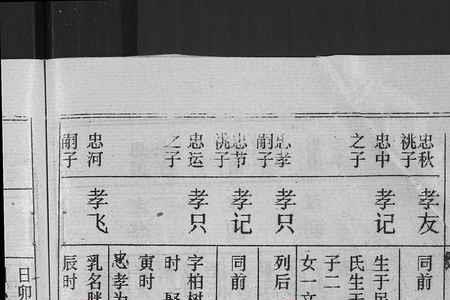 忠秋祧子
孝友
同前
忠中之子
孝记
生于
氏生
子二
女一
忠孝嗣子
孝只
列后
忠节祧子
孝记
同前
忠运之子
孝只
字柏树
时
寅时
忠孝为
忠河嗣子
孝飞
乳名
辰时
日卯